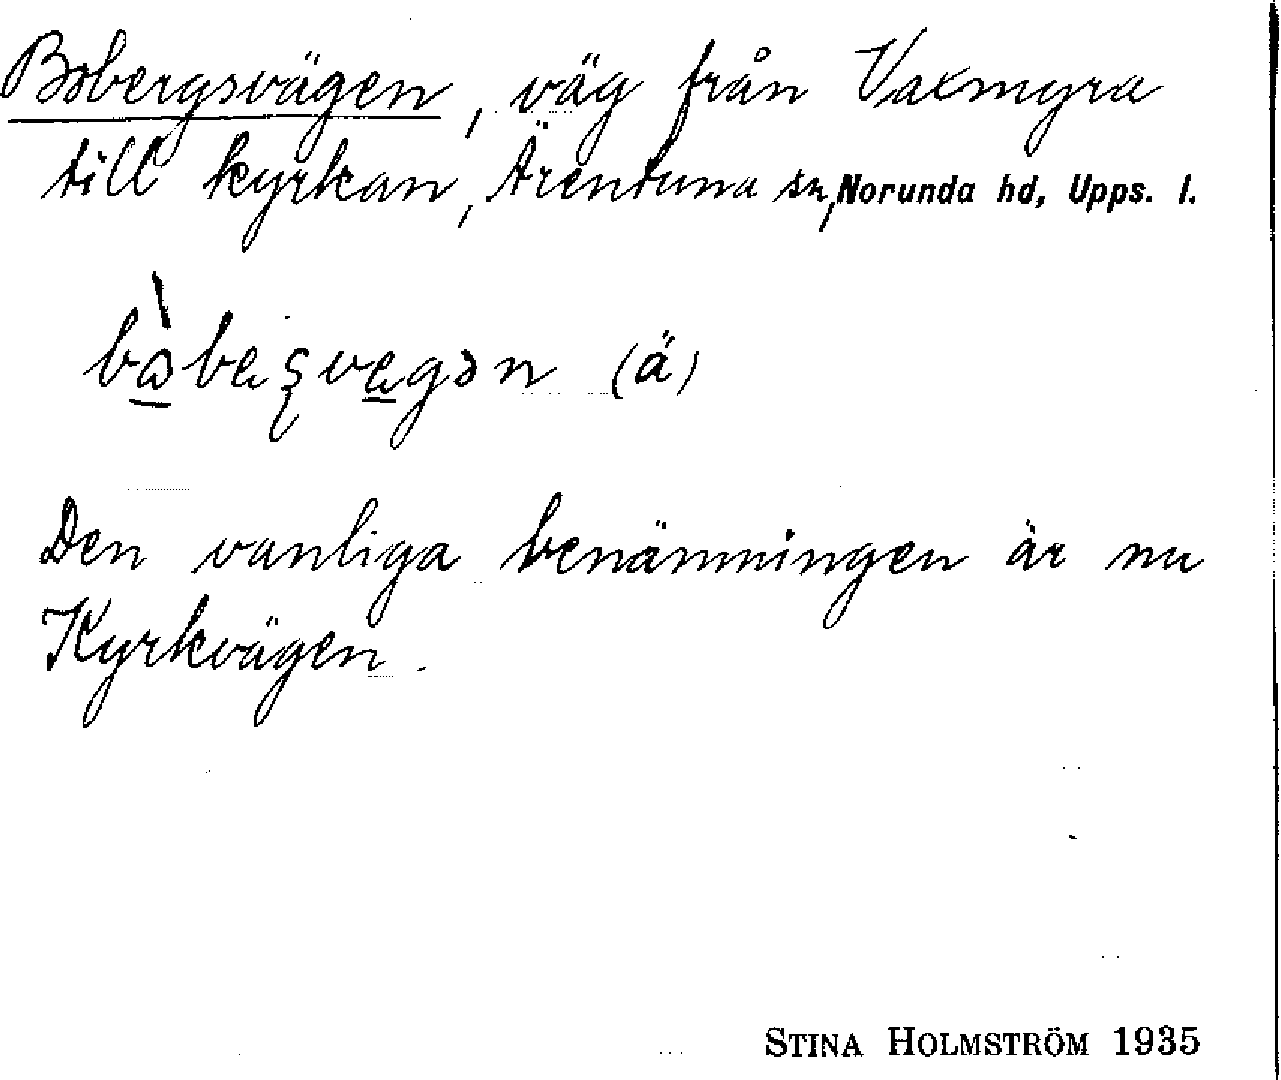 Bobergsvägen, väg från Vaxmyra
till kyrkan, Ärentuna sn, Norunda hd, Upps. l.
(ä)
Den vanliga benämningen är nu
Kyrkvägen.
STINA HOLMSTRÖM 1935